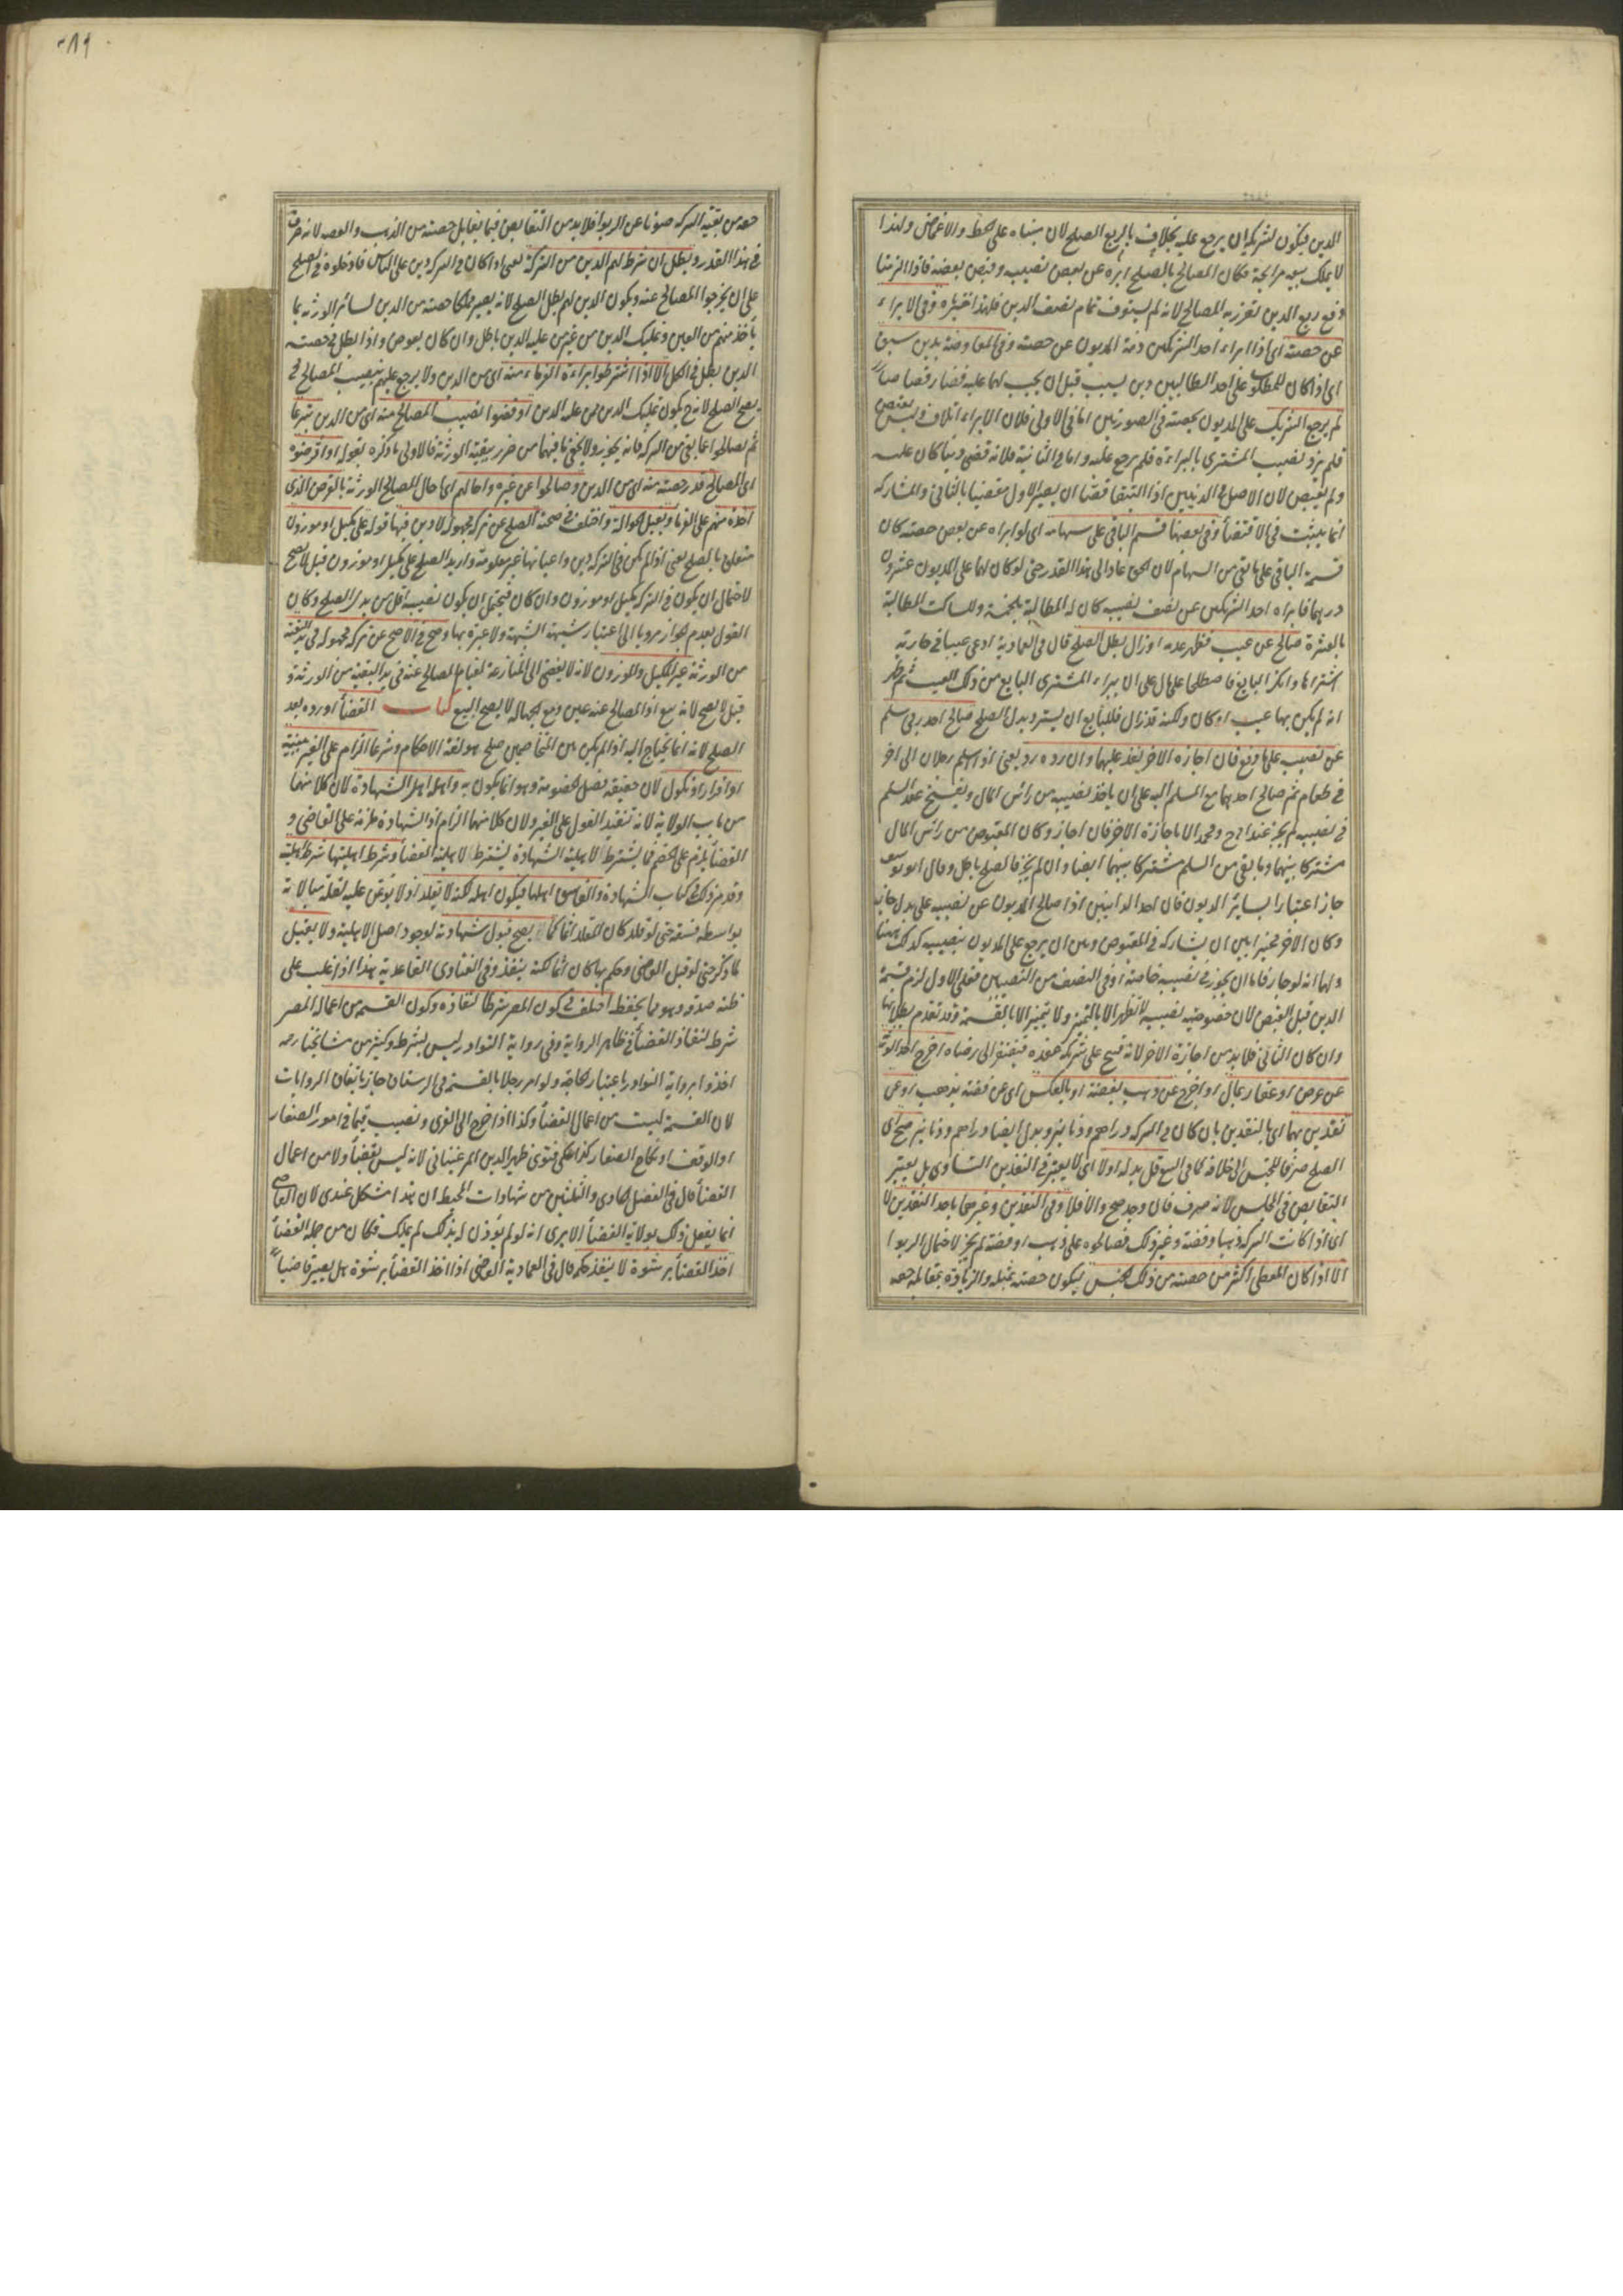 الدين فيكون لشريكه ان يرجع عليه بخلاف بالربع الصلح لان مبناه على الحط والاغماض ولهذا
لا يملك بيعه مرابحة فكان المصالح بالصلح ابراه عن بعض نصيبه وقبض بعضه فاذا الزمنا
دفع ربع الدين تضرر به المصالح لانه لم يستوف تمام نصف الدين فلهذا خيره وفي الابراء
عن حصته اى اذا ابراء احد الشريكين ذمة المديون عن حصته وفي المقاصة بدين سبق
اى اذا كان للمطلوب على احد الطالبين دين بسبب قبل ان يجب لهما عليه فصار قصاصا
لم يرجع الشريك على المديون بحصته في الصورتين اما في الاولى فلان الابراء اتلاف وليس بقبض
فلم يزد نصيب المشترى بالبراءة فلم يرجع عليه واما في الثانية فلانه قضى دينا كان عليه
ولم يقبض لان الاصل في الدينين اذا التقيا قصاصا ان يصير الاول مقضيا بالثاني والمشاركة
انما يثبت في الاقتضاء وفي بعضها قسم الباقي على سهامه اى لو ابراه عن بعض حصته كان
قسمة الباقي على ما بقي من السهام لان الحق عاد الى هذا القدر حتى لو كان لهما على المديون عشرون
درهما فابراه احد الشريكين عن نصف نصيبه كان له المطالبة بالخمسة وللساكت المطالبة
بالعشرة صالح عن عيب فظهر عدمه او زال بطل الصلح قال في العمادية ادعى عيبا في جارية
اشتراها وانكر البايع فاصطلحا على مال على ان يبراء المشترى البايع من ذلك العيب ثم ظهر
انه لم يكن بها عيب او كان ولكنه قد زال فللبايع ان يسترد بدل الصلح صالح احد ربى سلم
عن نصيبه على ما دفع فان اجازه الاخر نفذ عليهما وان رده رد يعنى اذا اسلم رجلان الى اخر
في طعام ثم صالح احدهما مع المسلم اليه على ان ياخذ نصيبه من رأس المال ويفسخ عقد السلم
في نصيبه لم يجز عند ابى ح ومحمد الا باجازة الاخر فان اجاز وكان المقبوض من رأس المال
مشتركا بينهما وما بقي من السلم مشتركا بينهما ايضا وان لم يجز فالصلح باطل وقال ابو يوسف
جاز اعتبارا بسائر الديون فان احد الدائنين اذا صالح المديون عن نصيبه على بدل جاز
وكان الاخر مخيرا بين ان يشاركه في المقبوض وبين ان يرجع على المديون بنصيبه كذلك ههنا
ولهما انه لو جاز فاما ان يجوز في نصيبه خاصة او في النصف من النصيبين فعلى الاول لزم قسمة
الدين قبل القبض لان خصوصية نصيبه لا تظهر الا بالتمييز ولا يتميز الا بالقسمة وقد تقدم بطلانها
وان كان الثاني فلا بد من اجازة الاخر لانه فسخ على شريكه عقده فيفتقر الى رضاه اخرج احد الورثة
عن عرض او عقار بمال او اخرج عن ذهب بفضة او بالعكس اى عن فضة بذهب او عن
نقدين بهما اى بالنقدين بان كان في التركة دراهم ودنانير وبدل ايضا دراهم ودنانير صح اى
الصلح صرفا للجنس الى خلافه كما في البيع قل بدله او لا اى لا يعتبر في النقدين التساوى بل يعتبر
التقابض في المجلس لانه صرف فان وجد صح والا فلا وفي النقدين وغيرهما باحد النقدين لا
اى اذا كانت التركة ذهبا وفضة وغير ذلك فصالحوه على ذهب او فضة لم يجز لاحتمال الربوا
الا اذا كان المعطى اكثر من حصته من ذلك الجنس ليكون حصته بمثله والزيادة بمقابلة حقه
حقه من بقية التركة صونا عن الربوا فلا بد من التقابض فيما يقابل حصته من الذهب والفضة لانه صرف
في هذا القدر وبطل ان شرط لهم الدين من التركة يعنى اذا كان في التركة دين على الناس فادخلوه في الصلح
على ان يخرجوا المصالح عنه ويكون الدين لهم بطل الصلح لانه يصير مملكا حصته من الدين لسائر الورثة بما
ياخذ منهم من العين وتمليك الدين من غير من عليه الدين باطل وان كان بعوض واذا بطل في حصة
الدين بطل في الكل الا اذا اشترطوا براءة الغرماء منه اى من الدين ولا يرجع عليهم بنصيب المصالح فح
يصح الصلح لانه ح يكون تمليك الدين ممن عليه الدين او قضوا نصيب المصالح منه اى من الدين تبرعا
ثم يصالحوا عما بقي من التركة فانه يجوز ولا يخفى ما فيهما من ضرر بقية الورثة فالاولى ما ذكره بقوله او اقرضوه
اى المصالح قدر حصته منه اى من الدين وصالحوا عن غيره واحالهم اى احال المصالح الورثة بالقرض الذى
اخذه منهم على الغرما ويقبل الحوالة واختلف في صحة الصلح عن تركة مجهولة لا دين فيها قوله على مكيل او موزون
متعلق بالصلح يعنى اذا لم يكن في التركة دين واعيانها غير معلومة واريد الصلح على مكيل او موزون قيل لا يصح
لاحتمال ان يكون في التركة مكيل او موزون وان كان فيحتمل ان يكون نصيبه اقل من بدل الصلح وكان
القول بعدم الجواز مرويا الى اعتبار شبهة الشبهة ولا عبرة بها وصح في الاصح عن تركة مجهولة في يد البقية
من الورثة غير المكيل والموزون لانه لا يفضى الى المنازعة لقيام المصالح عنه في يد البقية من الورثة و
قيل لا يصح لانه بيع اذ المصالح عنه عين ومع الجهالة لا يصح البيع كتاب القضأ اورده بعد
الصلح لانه انما يحتاج اليه اذا لم يكن بين المتخاصمين صلح هو لغة الاحكام وشرعا الزام على الغير ببينة
او اقرار او نكول لان حقيقته فصل الخصومة وهو انما يكون به واهله اهل الشهادة لان كلا منهما
من باب الولاية لانه تنفيذ القول على الغير ولان كلا منهما الزام اذ الشهادة ملزمة على القاضى و
القضأ يلزم على الخصم فما يشترط لاهلية الشهادة يشترط لاهلية القضأ وشرط اهليتها شرط اهليته
وقد مر ذلك في كتاب الشهادة والفاسق اهلها فيكون اهله لكنه لا يقلد اذ لا يؤتمن عليه لقلة مبالاته
بواسطة فسقه حتى لو قلد كان المقلد اثما كما يصح قبول شهادته لوجود اصل الاهلية ولا يقبل
لما ذكر حتى لو قبل القاضى وحكم بها كان اثما لكنه ينفذ وفي الفتاوى القاعدية هذا اذا غلب على
ظنه صدقه وهو مما يحفظ اختلف في كون المصر شرطا لنفاذه وكون القسمة من اعماله المصر
شرط لنفاذ القضأ في ظاهر الرواية وفي رواية النوادر ليس بشرط وكثير من مشايخنا رحمه
اخذوا برواية النوادر باعتبار الحاجة ولو امر رجلا بالقسمة في الرستاق جاز باتفاق الروايات
لان القسمة ليست من اعمال القضأ وكذا اذا خرج الى القرى ونصيب قيما في امور الصغار
او الوقف او نكاح الصغار كذا حكى فتوى ظهير الدين المرغينانى لانه ليس بقضأ ولا من اعمال
القضأ قال في الفصل الحادى والثلثين من شهادات المحيط ان هذا مشكل عندى لان القاضى
انما يفعل ذلك بولاية القضأ الا يرى انه لو لم يؤذن له بذلك لم يملك فكان من جملة القضأ
اخذ القضأ برشوة لا ينفذ حكمه قال في العمادية القاضى اذا اخذ القضأ برشوة هل يصير قاضيا